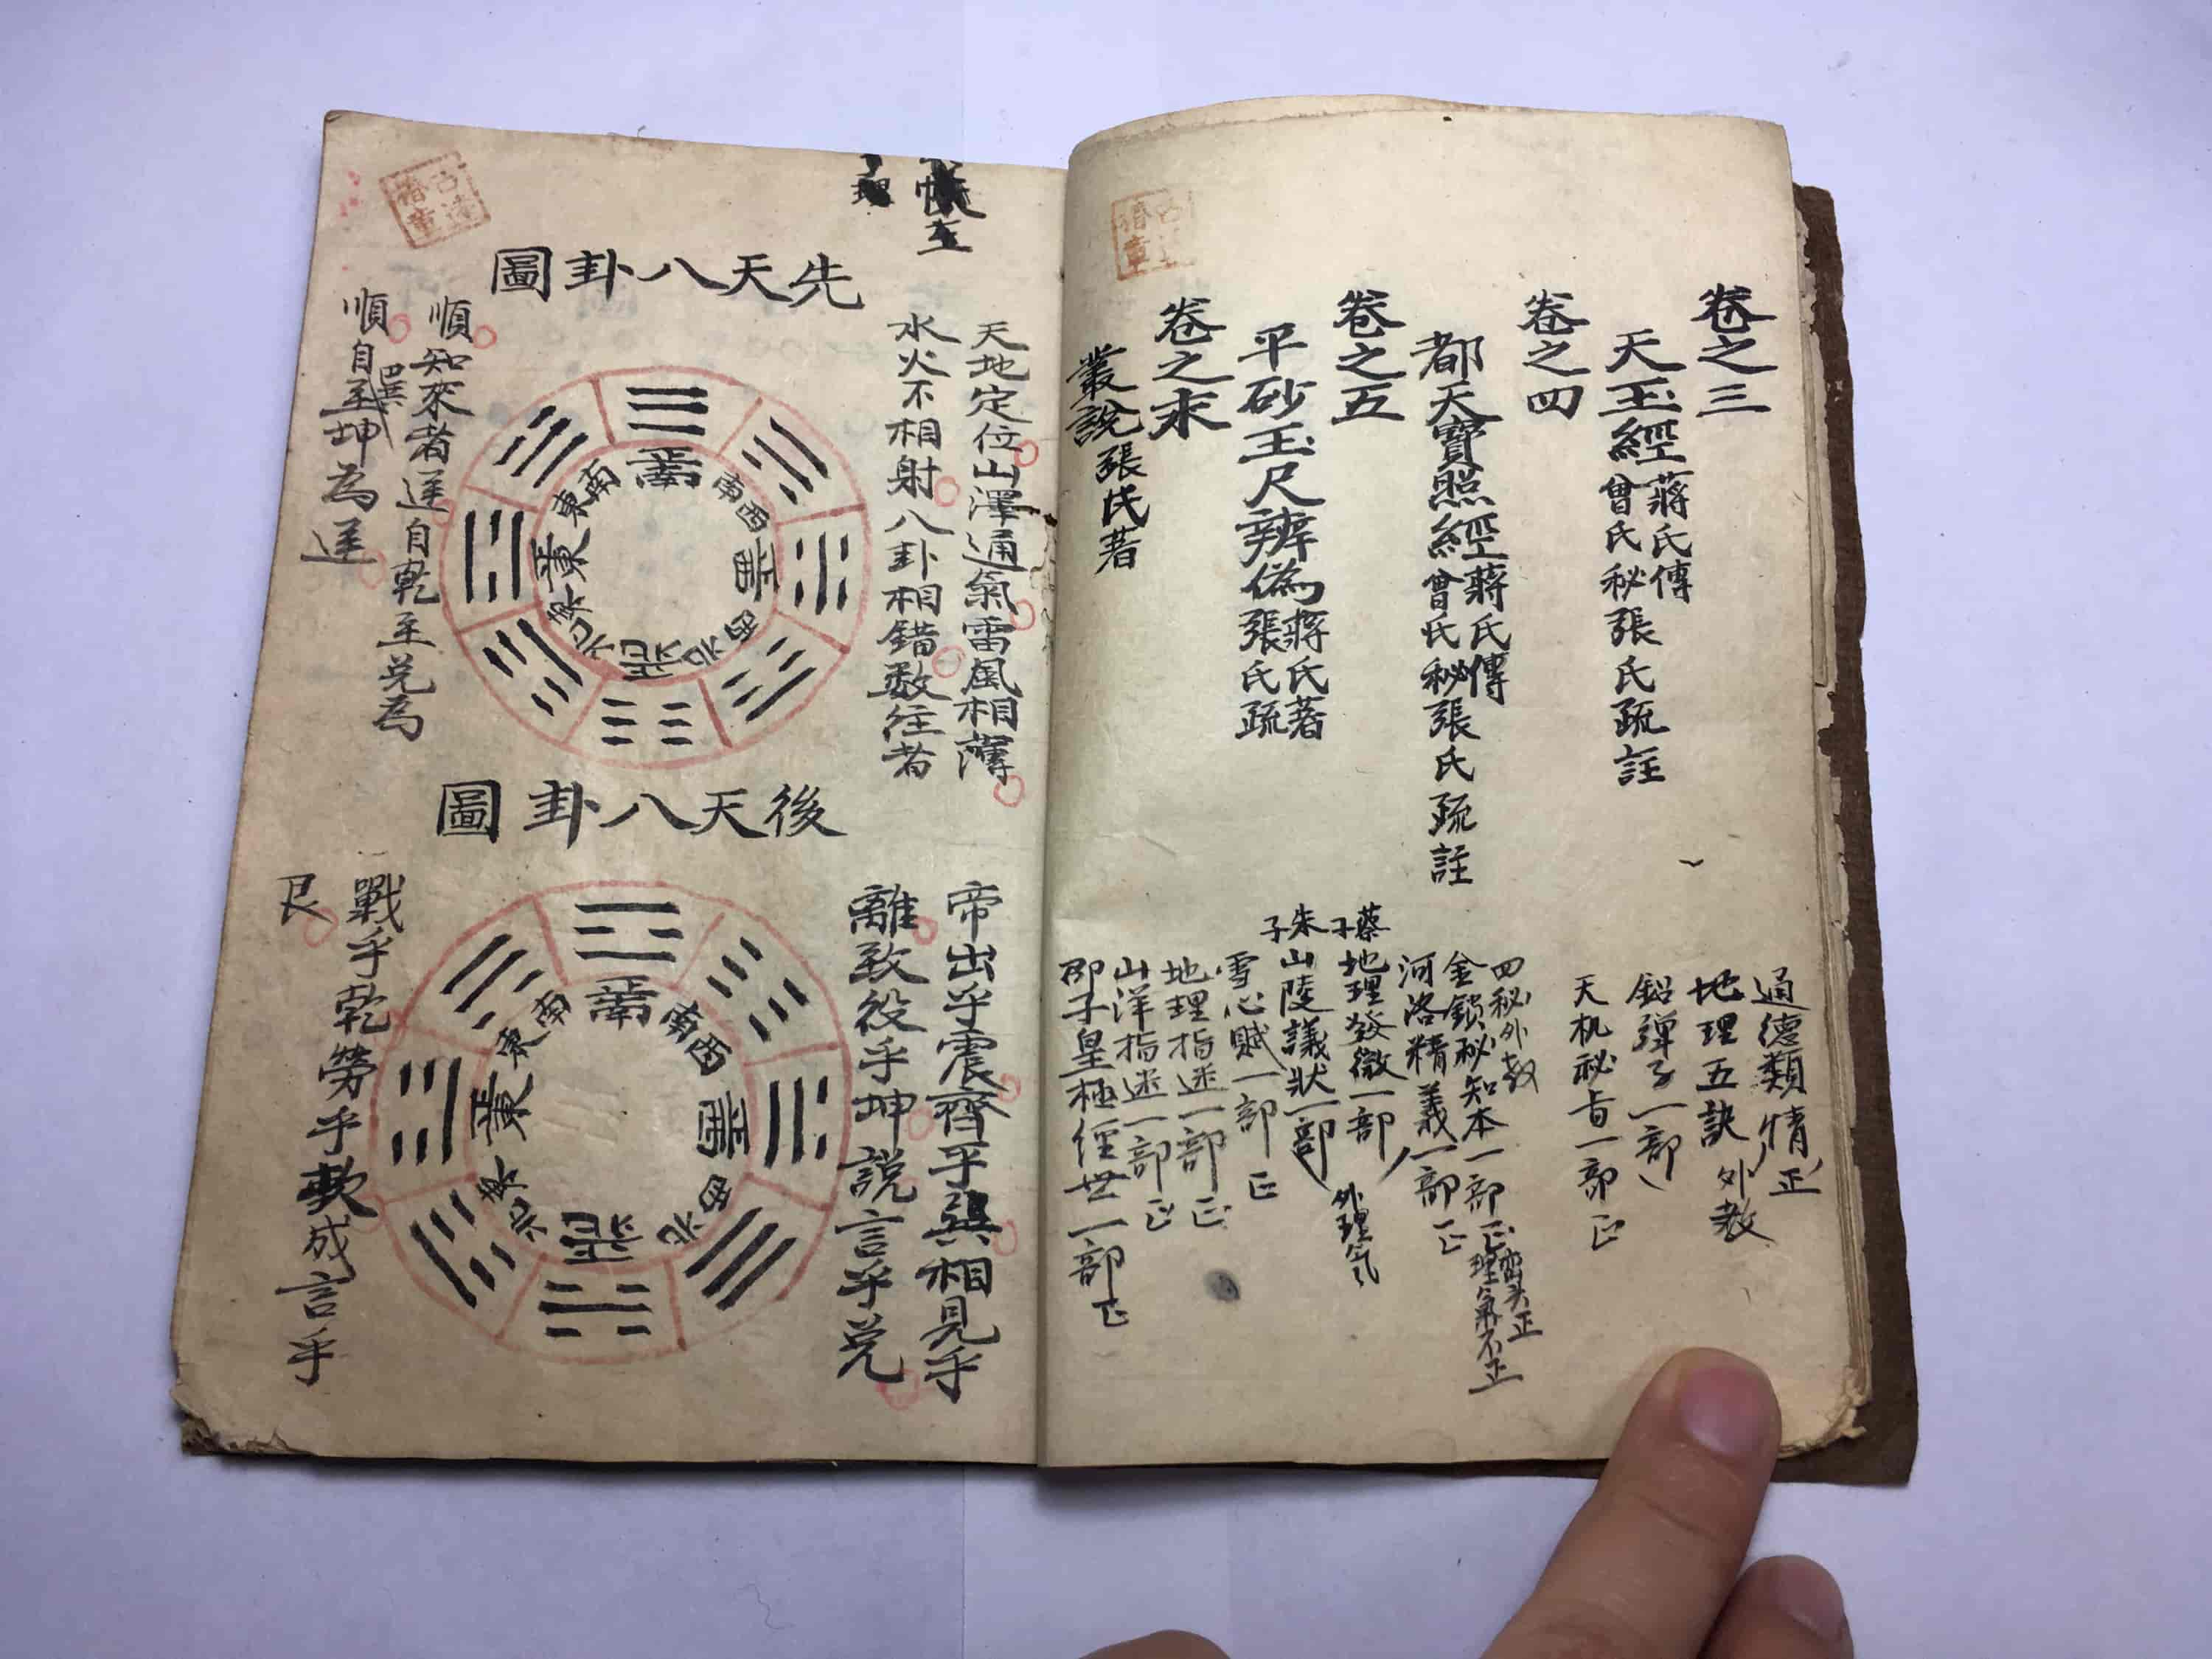 卷之三
天玉經蔣氏傳
曾氏秘張氏疏註
卷之四
都天寶照經蔣氏傳
曾氏秘張氏疏註
卷之五
平砂玉尺辨偽蔣氏著
張氏疏
卷之末
叢說張氏著
通德類情正
地理五訣外教
鉛彈子一部
天机秘旨一部正
四秘外教
金鎖秘知本一部正巒头正
理氣不正
河洛精義一部正
蔡子
地理發微一部
外理气
朱子
山陵議狀一部
雪心賦一部正
地理指迷一部正
山洋指迷一部正
邵子皇極經世一部正
先天八卦圖
天地定位山澤通氣雷風相薄
水火不相射八卦相錯数往者
順知來者逆自乾至兑為
順自巽至坤為逆
南
西南
西
西北
北
東北
東
東南
後天八卦圖
帝出乎震齊乎巽相見乎
離致役乎坤說言乎兑
戰乎乾勞乎坎成言乎
艮
南
西南
西
西北
北
東北
東
東南